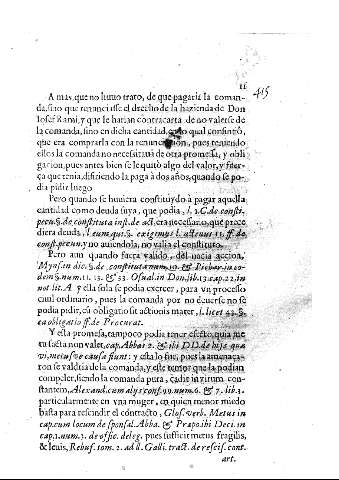 11
415
A mas, que no huuo trato, de que pagaria la coman-
da, sino que renunciasse el drecho de la hazienda de Don
Iosef Ram, y que le harian contracarta de no valerse de
la comanda, sino en dicha cantidad, en lo qual consintiò,
que era comprarla con la renunciacion, pues teniendo
ellos la comanda no necessitauã de otra promesa, y obli
gacion, pues antes bien se le quitò algo del valor, y fuer-
ça que tenia, difiriendo la paga à dos años, quando se po-
dia pidir luego
Pero quando se huuiera constituydo à pagar aquella
cantidad como deuda suya, que podia, l. 2. C. de consti.
pecu. §. de constituta inst. de act. era necessario, que prece
diera deuda, l. eum qui. §. exigimus l. actenus 11. ff. de
const. pecun. y no auiendola, no valia el constituto.
Pero aun quando fuera valido, del nacia accion,
Mynsin. dic. §. de constituta num. 10. & Pichar. in eo-
dem §. num. 11. 13. & 53. Osuald. in Don. lib. 13. cap. 22. in
not. lit. A y ella sola se podia exercer, para vn processo
ciuil ordinario, pues la comanda por no deuerse no se
podia pidir, cũ obligatio sit actionis mater, l. licet 42. §.
ea obligatio ff. de Procurat.
Y esta promesa, tampoco podia tener efecto, quia me
tu facta non valet, cap. Abbas 2. & ibi DD. de hijs quæ
vi, metus ve causa fiunt: y esta lo fue, pues la amenaça-
ron se valdria de la comanda, y este temor que la podian
compeler, siendo la comanda pura, cadit in virum cons-
tantem, Alexand. cum alijs consf. 99. num. 6. & 7. lib. 3.
particularmente en vna muger, en quien menor miedo
basta para rescindir el contracto, Glos. verb. Metus in
cap. cum locum de sponsal. Abba. & Præpositi Deci. in
cap. 1. num. 3. de offic. deleg. pues sufficit metus fragilis,
& leuis, Rebuf. tom. 2. ad ll. Galli. tract. de rescis. cont.
art.